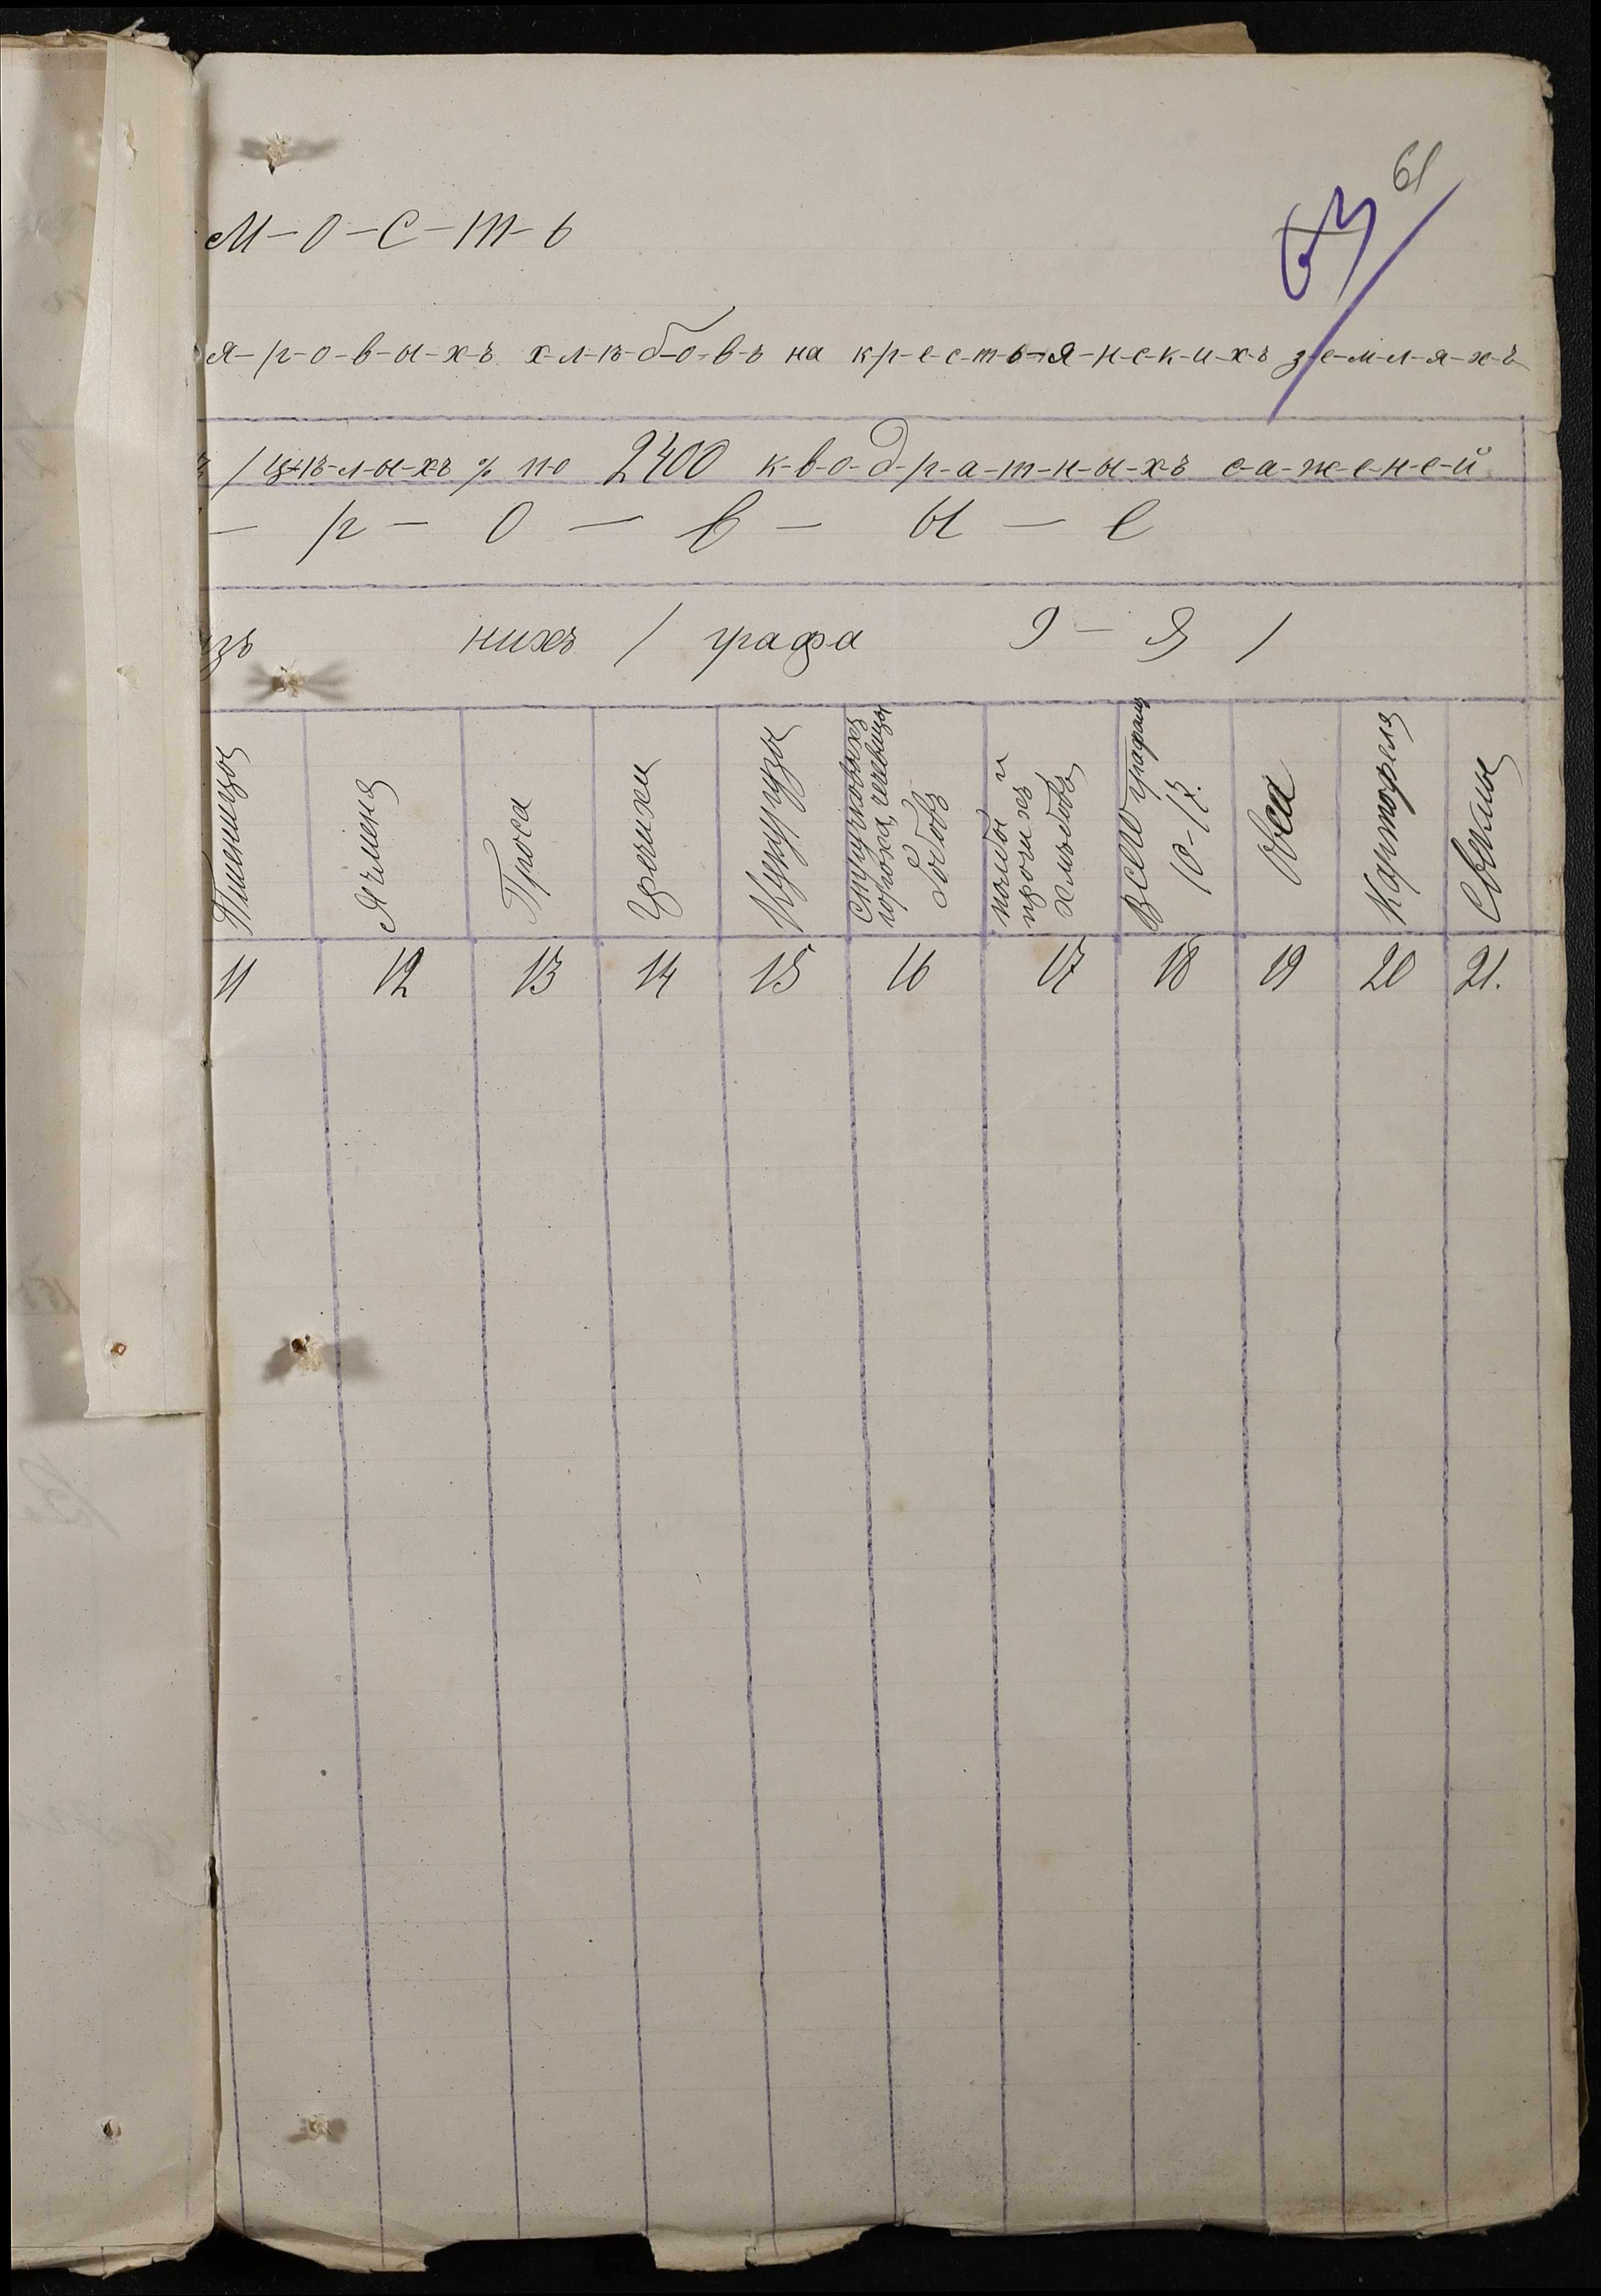 61
63
М-о-с-т-ь
я-р-о-в-ы-х-ъ х-л-ѣ-б-о-в-ъ на к-р-е-с-т-ь-я-н-с-к-и-х-ъ з-е-м-л-я-х-ъ
/ ц-ѣ-л-ы-х-ъ % п-о 2400 к-в-а-д-р-а-т-н-ы-х-ъ с-а-ж-е-н-е-й
— р — о — в — ы — е
изъ нихъ / графа 9 — я /
Пшеницы
Ячменя
Проса
Гречихи
Кукурузы
Стручковыхъ
гороха, чечевицы
бобовъ
полбы и
прочихъ
хлѣбовъ
Всего графамъ
10-17.
Овса
Картофеля
Свеклы
11 12 13 14 15 16 17 18 19 20 21.